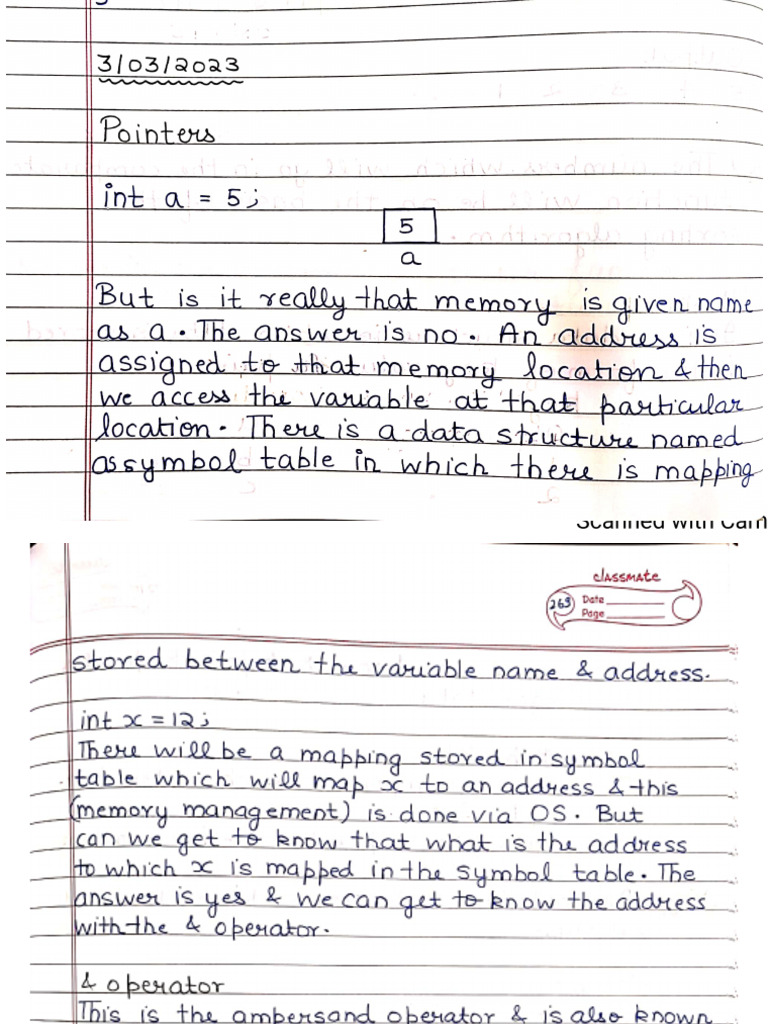 3/03/2023
Pointers
int a = 5;
5
a
But is it really that memory is given name
as a. The answer is no. An address is
assigned to that memory location & then
we access the variable at that particular
location. There is a data structure named
as symbol table in which there is mapping
Scanned with Cam
classmate
263 Date
Page
stored between the variable name & address.
int x = 12;
There will be a mapping stored in symbol
table which will map x to an address & this
(memory management) is done via OS. But
can we get to know that what is the address
to which x is mapped in the symbol table. The
answer is yes & we can get to know the address
with the & operator.
& operator
This is the ambersand operator & is also known